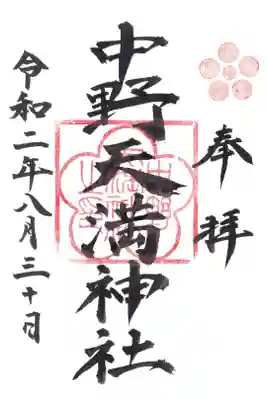 奉拝
中野天満神社
令和二年八月三十日